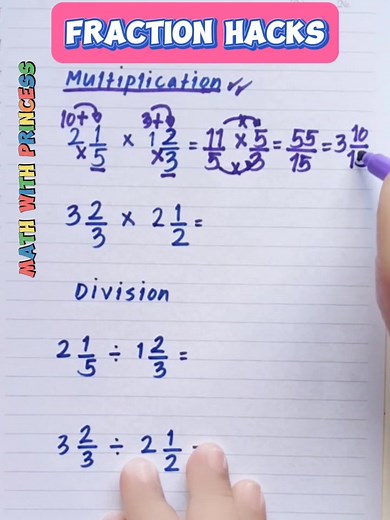 FRACTION HACKS
MATH WITH PRINCESS
Multiplication
10+ 3+
2 1/5 × 1 2/3 = 11/5 × 5/3 = 55/15 = 3 10/15
3 2/3 × 2 1/2 =
Division
2 1/5 ÷ 1 2/3 =
3 2/3 ÷ 2 1/2